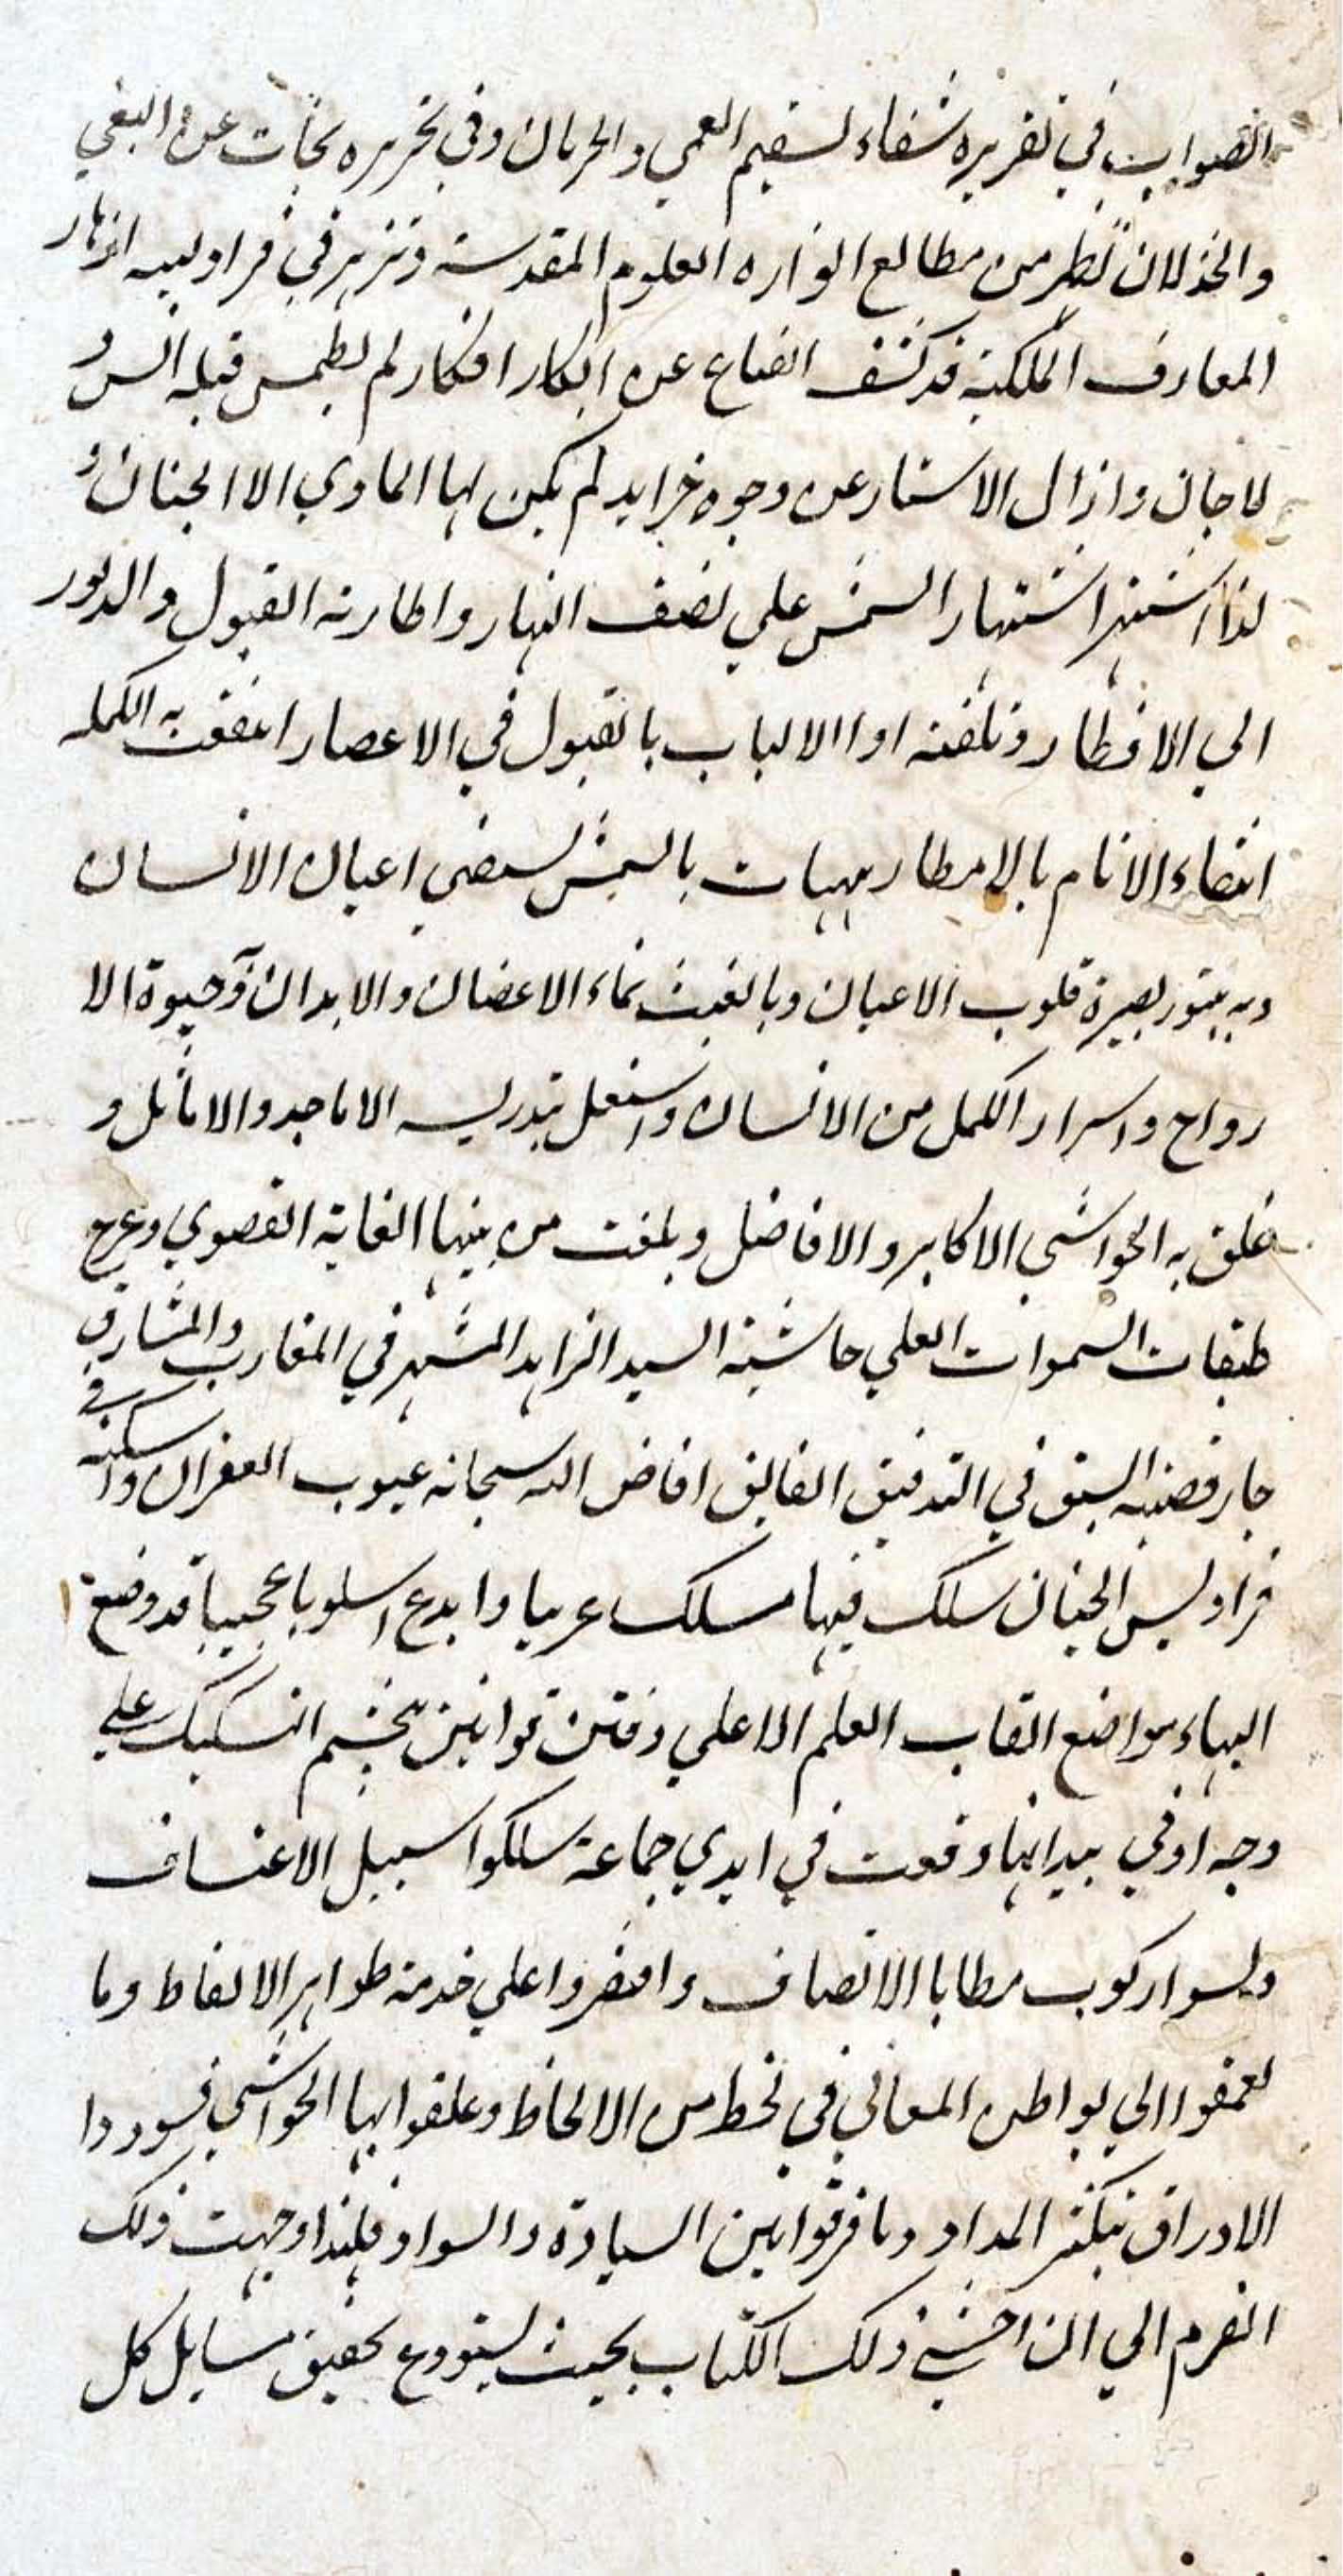 الصواب في تقريره شفاء لسقيم العمي والحرمان وفي تحريره نجات عن البغي
والخذلان تطر من مطالع انواره العلوم المقدسة وتزهر في فراديسه ازهار
المعارف الملكية قد كشف القناع عن ابكار افكار لم يطمس قبله انس و
لا جان وازال الاستار عن وجوه خرايد لم يكن لها الماوي الا الجنان و
لذا اشتهر اشتهار الشمس علي نصف النهار واطارته القبول والدبور
الي الاقطار وتلقته اوا الالباب بالقبول في الاعصار انتفعت به الكمله
انتفاء الانام بالامطار هيهات بالشمس يستضي اعيان الانسان
وبه يتنور بصيرة قلوب الاعيان وبالغيث نماء الاغصان والابدان وحيوة الا
رواح واسرار الكمل من الانسان واشتغل بتدريسه الاماجد والاماثل و
علق به الحواشي الاكابر والافاضل وبلغت من بينها الغاية القصوي وعرج
طبقات السموات العلي حاشية السيد الزاهد المشتهر في المغارب والمشارق
حاز قصبه السبق في التدقيق الفايق افاض الله سبحانه عيوب الغفران واسكنه في
فراديس الجنان سلك فيها مسلك غريبا وابدع اسلوبا عجيبا قد وضع
الهباء مواضع النقاب العلم الاعلي وفتن قوانين التشكيك علي
وجه اوفي بيد انها وقعت في ايدي جماعة سلكوا سبيل الاعتساف
ونسوا ركوب مطايا الانصاف واقتصروا علي خدمة ظواهر الالفاظ وما
تعمقوا الي بواطن المعاني في لحظ من الالحاظ وعلقوا بها الحواشي فسوردا
الاوراق بتكثر المداد وما فرقوا بين السيادة والسواد فلهذا وجهت ذلك
القرم الي ان احشي ذلك الكتاب بحيث يستودع تحقيق مسايل كل